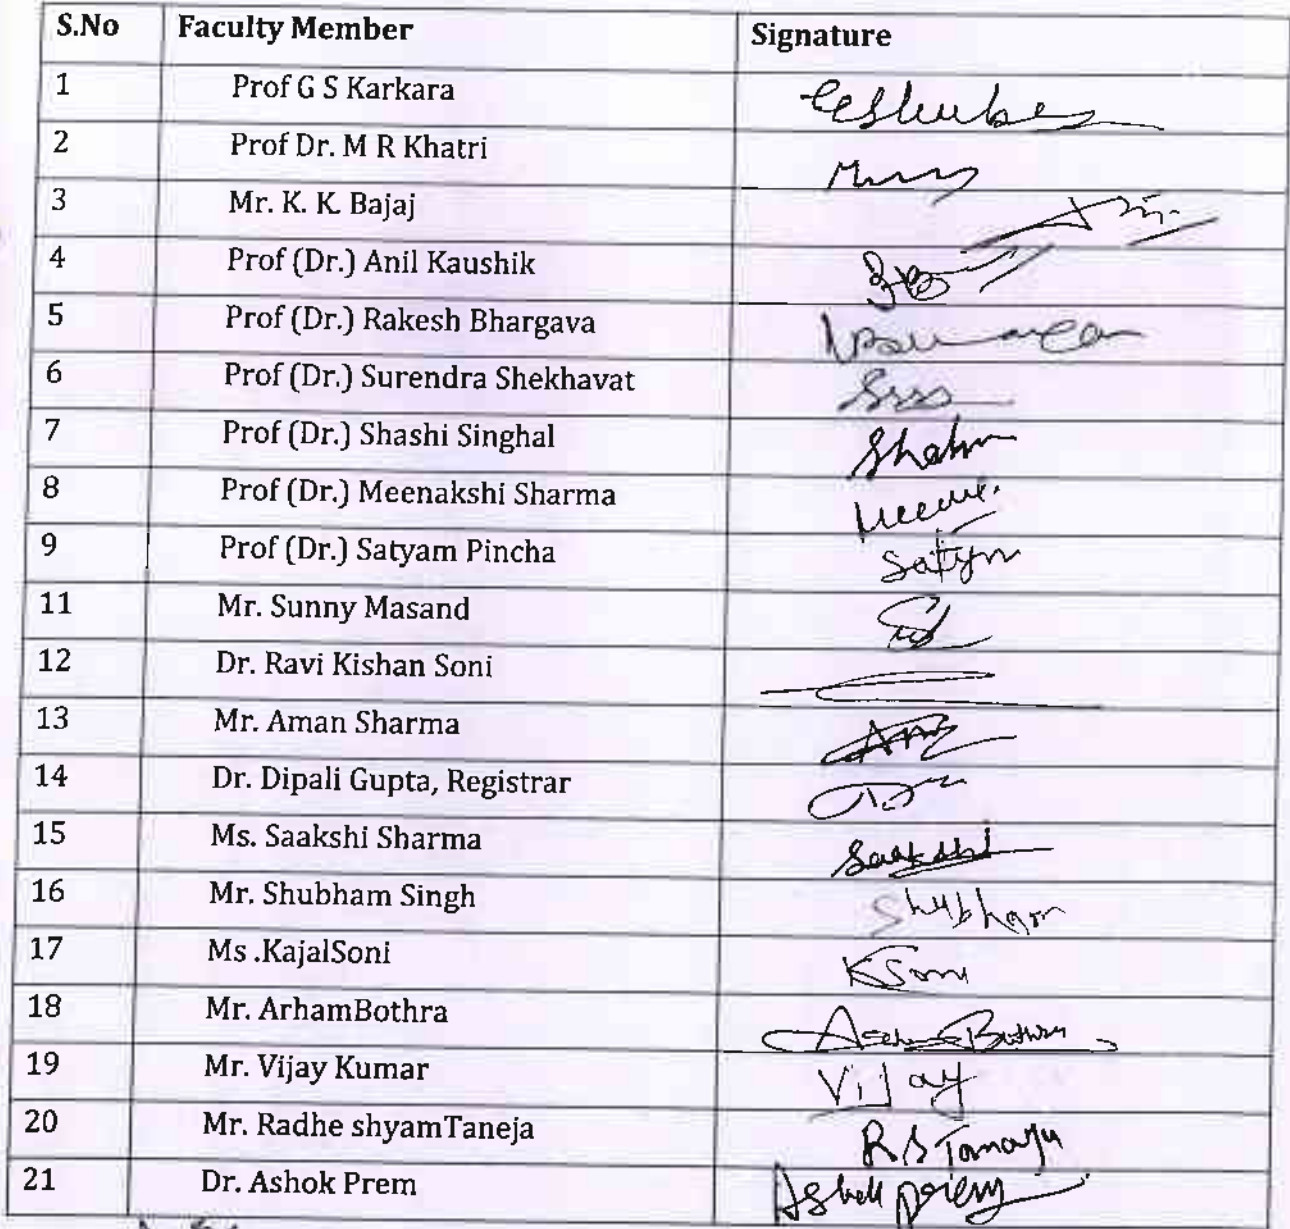 S.No Faculty Member Signature
1 Prof G S Karkara
2 Prof Dr. M R Khatri
3 Mr. K. K. Bajaj
4 Prof (Dr.) Anil Kaushik
5 Prof (Dr.) Rakesh Bhargava
6 Prof (Dr.) Surendra Shekhavat
7 Prof (Dr.) Shashi Singhal
8 Prof (Dr.) Meenakshi Sharma
9 Prof (Dr.) Satyam Pincha Satym
11 Mr. Sunny Masand
12 Dr. Ravi Kishan Soni
13 Mr. Aman Sharma
14 Dr. Dipali Gupta, Registrar
15 Ms. Saakshi Sharma Saakshi
16 Mr. Shubham Singh Shubham
17 Ms .KajalSoni KSoni
18 Mr. ArhamBothra
19 Mr. Vijay Kumar Vijay
20 Mr. Radhe shyamTaneja R S
21 Dr. Ashok Prem Ashok Prem